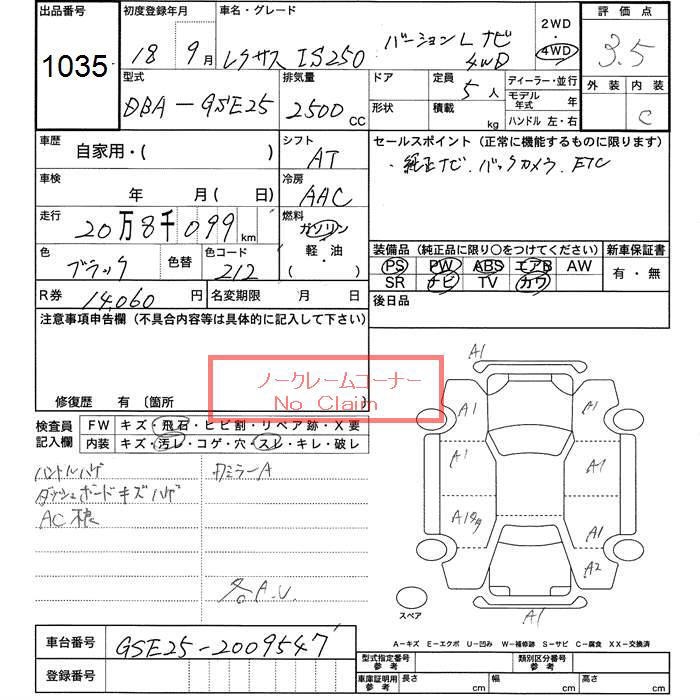 出品番号
1035
初度登録年月
18年 9月
車名・グレード
レクサス IS250 バージョンL ナビ 4WD
2WD・4WD
評価点
3.5
型式
DBA-GSE25
排気量
2500 CC
ドア
形状
定員
5人
積載
kg
ディーラー・並行
モデル年式 年
ハンドル 左・右
外装
内装
C
車歴
自家用・( )
シフト
AT
セールスポイント(正常に機能するものに限ります)
・純正ナビ、バックカメラ、ETC
車検
年 月( 日)
冷房
AAC
走行
20万8千099km
燃料
ガソリン
軽・油
( )
色
ブラック
色替
色コード
212
装備品(純正品に限り○をつけてください)
新車保証書
PS PW ABS エアB AW
有・無
SR ナビ TV カワ
R券
14,060円
名変期限 月 日
後日品
注意事項申告欄(不具合内容等は具体的に記入して下さい)
ノークレームコーナー
No Claim
修復歴 有〔箇所
検査員記入欄
FW キズ・飛石・ヒビ割・リペア跡・X要
内装 キズ・汚レ・コゲ・穴・スレ・キレ・破レ
ハンドルハゲ
ダッシュボードキズハゲ
AC穣
カミラーA
各A.U.
A1
A1
A1
A1
A1
A1
A2
A1
スペア
A-キズ E-エクボ U-凹み W-補修跡 S-サビ C-腐食 XX-交換済
車台番号
GSE25-2009547
登録番号
型式指定番号 参考
類別区分番号 参考
車庫証明用 参考
長さ cm
幅 cm
高さ cm